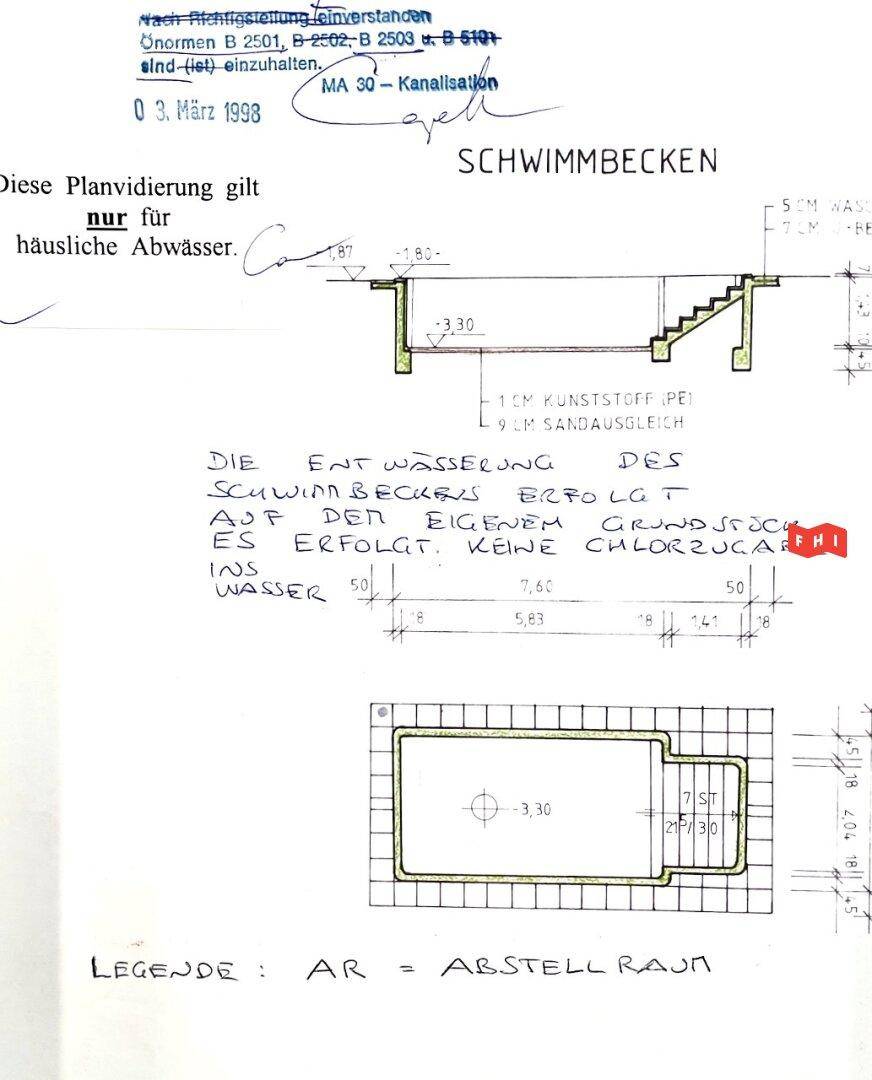 Nach Richtigstellung einverstanden
Önormen B 2501, B 2502, B 2503 u. B 5101
sind (ist) einzuhalten.
MA 30 – Kanalisation
03. März 1998
SCHWIMMBECKEN
Diese Planvidierung gilt
nur für
häusliche Abwässer.
5 CM
7 CM
-1,87
-1,80-
-3,30
1 CM KUNSTSTOFF (PE)
9 CM SANDAUSGLEICH
DIE ENTWÄSSERUNG DES
SCHWIMMBECKENS ERFOLGT
AUF DEM EIGENEM GRUNDSTÜCK
ES ERFOLGT. KEINE CHLORZUGABE
FHI
INS
WASSER
50 7,60 50
18 5,83 18 1,41 18
45 18 2,04 18 45
7 ST
-3,30
21,5/30
LEGENDE : AR = ABSTELLRAUM